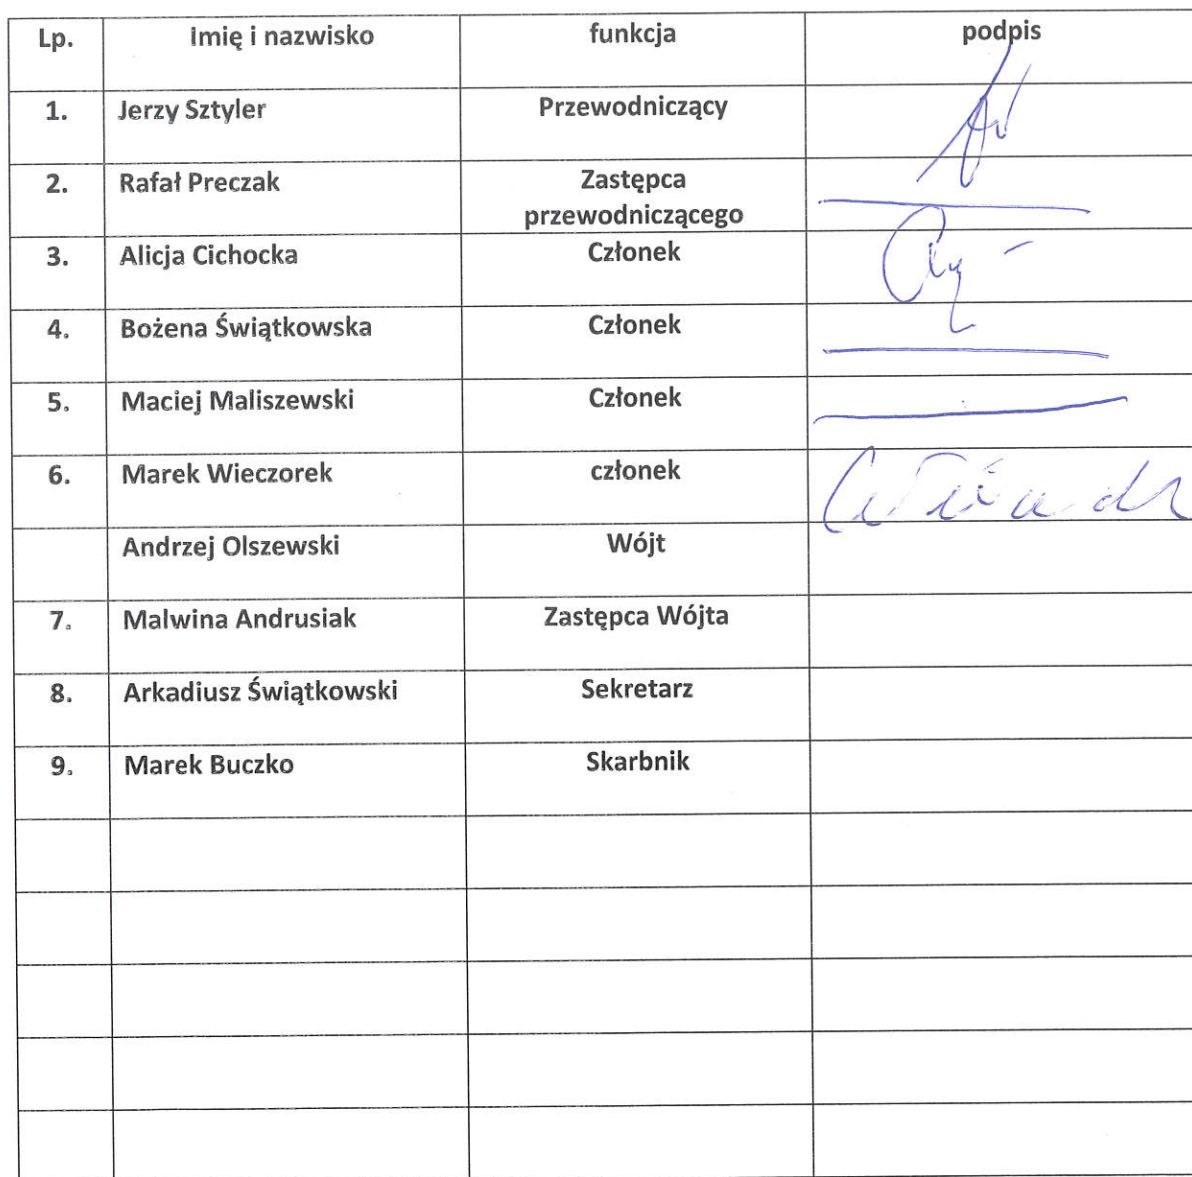 Lp. Imię i nazwisko funkcja podpis
1. Jerzy Sztyler Przewodniczący
2. Rafał Preczak Zastępca
przewodniczącego
3. Alicja Cichocka Członek
4. Bożena Świątkowska Członek
5. Maciej Maliszewski Członek
6. Marek Wieczorek członek
Andrzej Olszewski Wójt
7. Malwina Andrusiak Zastępca Wójta
8. Arkadiusz Świątkowski Sekretarz
9. Marek Buczko Skarbnik